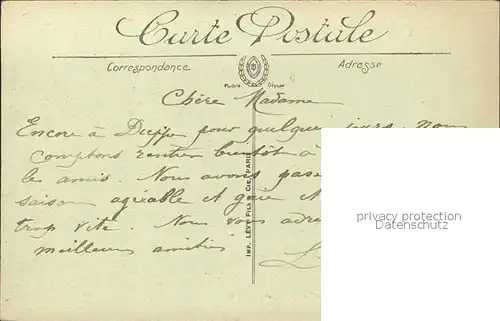 Carte Postale
Correspondance
Adresse
Modèle Déposé
Chère Madame
Encore à Dieppe pour quelques jours. nous
comptons rentrer bientôt à
les amis. Nous avons pas
saison agréable et qui
trop vite. Nous vous adre
meilleures amitiés
IMP. LÉVY FILS & CIE, PARIS
privacy protection
Removed